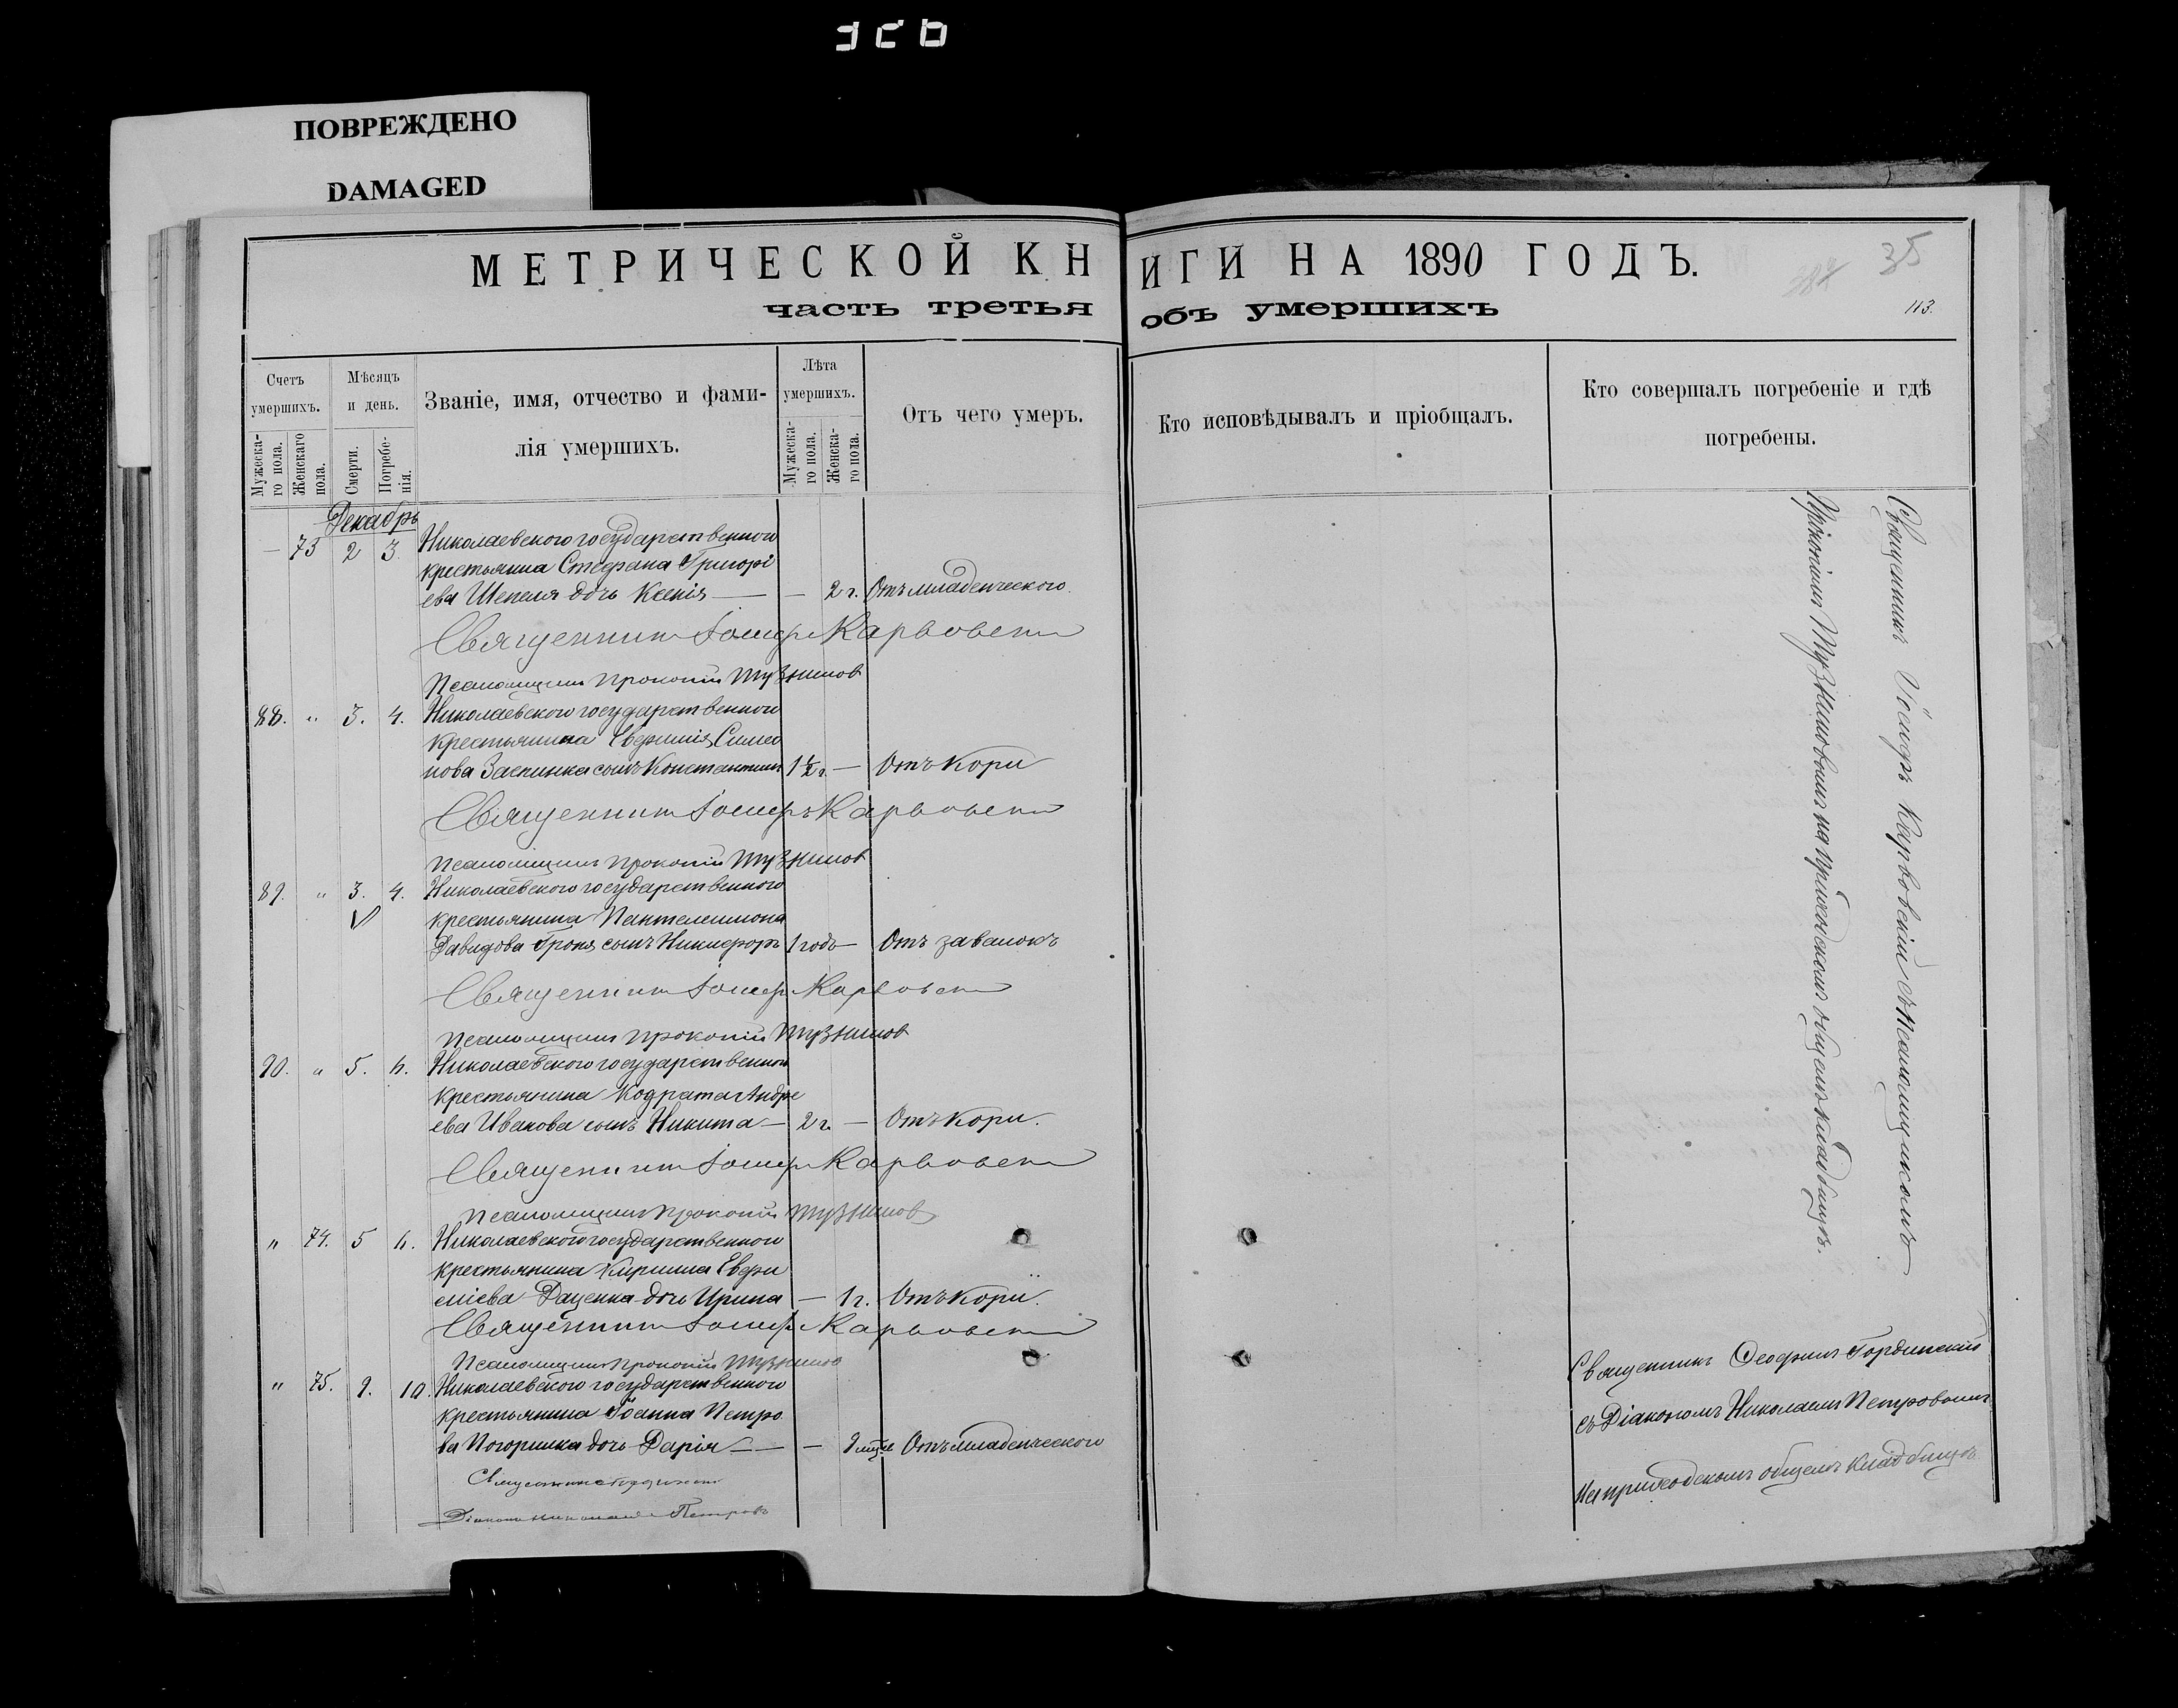 ПОВРЕЖДЕНО
DAMAGED
МЕТРИЧЕСКОЙ КНИГИ НА 1890 ГОДЪ.
35
часть третья объ умершихъ
113.
Счетъ умершихъ.
Мужеска-го пола.
Женскаго пола.
Мѣсяцъ и день.
Смерти.
Погребе-нія.
Званіе, имя, отчество и фами-
лія умершихъ.
Лѣта умершихъ.
Мужеска-го пола.
Женска-го пола.
Отъ чего умеръ.
Кто исповѣдывалъ и пріобщалъ.
Кто совершалъ погребеніе и гдѣ
погребены.
Декабрь
— 73 2 3. Николаевского государственного
крестьянина Стефана Григорі
ева Шепеля дочь Ксенія — — 2 г. Отъ младенческого.
Священникъ Іосифъ Карвовскій
Псаломщикъ Прокопій
88. „ 3. 4. Николаевского государственного
крестьянина Евфимія Симео
нова сынъ Константинъ 1½ г. — Отъ кори
Священникъ Іосифъ Карвовскій
Псаломщикъ Прокопій
89. „ 3. 4. Николаевского государственного
крестьянина Пантелеимона
Давидова сынъ Никифоръ 1 годъ — Отъ завалокъ
Священникъ Іосифъ Карвовскій
Псаломщикъ Прокопій
90. „ 5. 6. Николаевского государственного
крестьянина Кодрата Андре
ева Ивахова сынъ Никита — 2 г. — Отъ кори.
Священникъ Іосифъ Карвовскій
Псаломщикъ Прокопій
„ 74. 5 6. Николаевского государственного
крестьянина Кирилла Евфи
міева Даценка дочь Ирина — 1 г. Отъ кори.
Священникъ Іосифъ Карвовскій
Псаломщикъ Прокопій
„ 75. 9. 10. Николаевского государственного
крестьянина Іоанна Петро
ва Погорилка дочь Дарія — — Отъ младенческого
Священникъ
Діаконъ Николай Петровъ
Священникъ Іосифъ Карвовскій съ псаломщикомъ
Прокопіемъ на приходскомъ общемъ кладбищѣ.
Священникъ Ѳеофилъ Гординскій
съ Діакономъ Николаемъ Петровымъ
на приходскомъ общемъ кладбищѣ